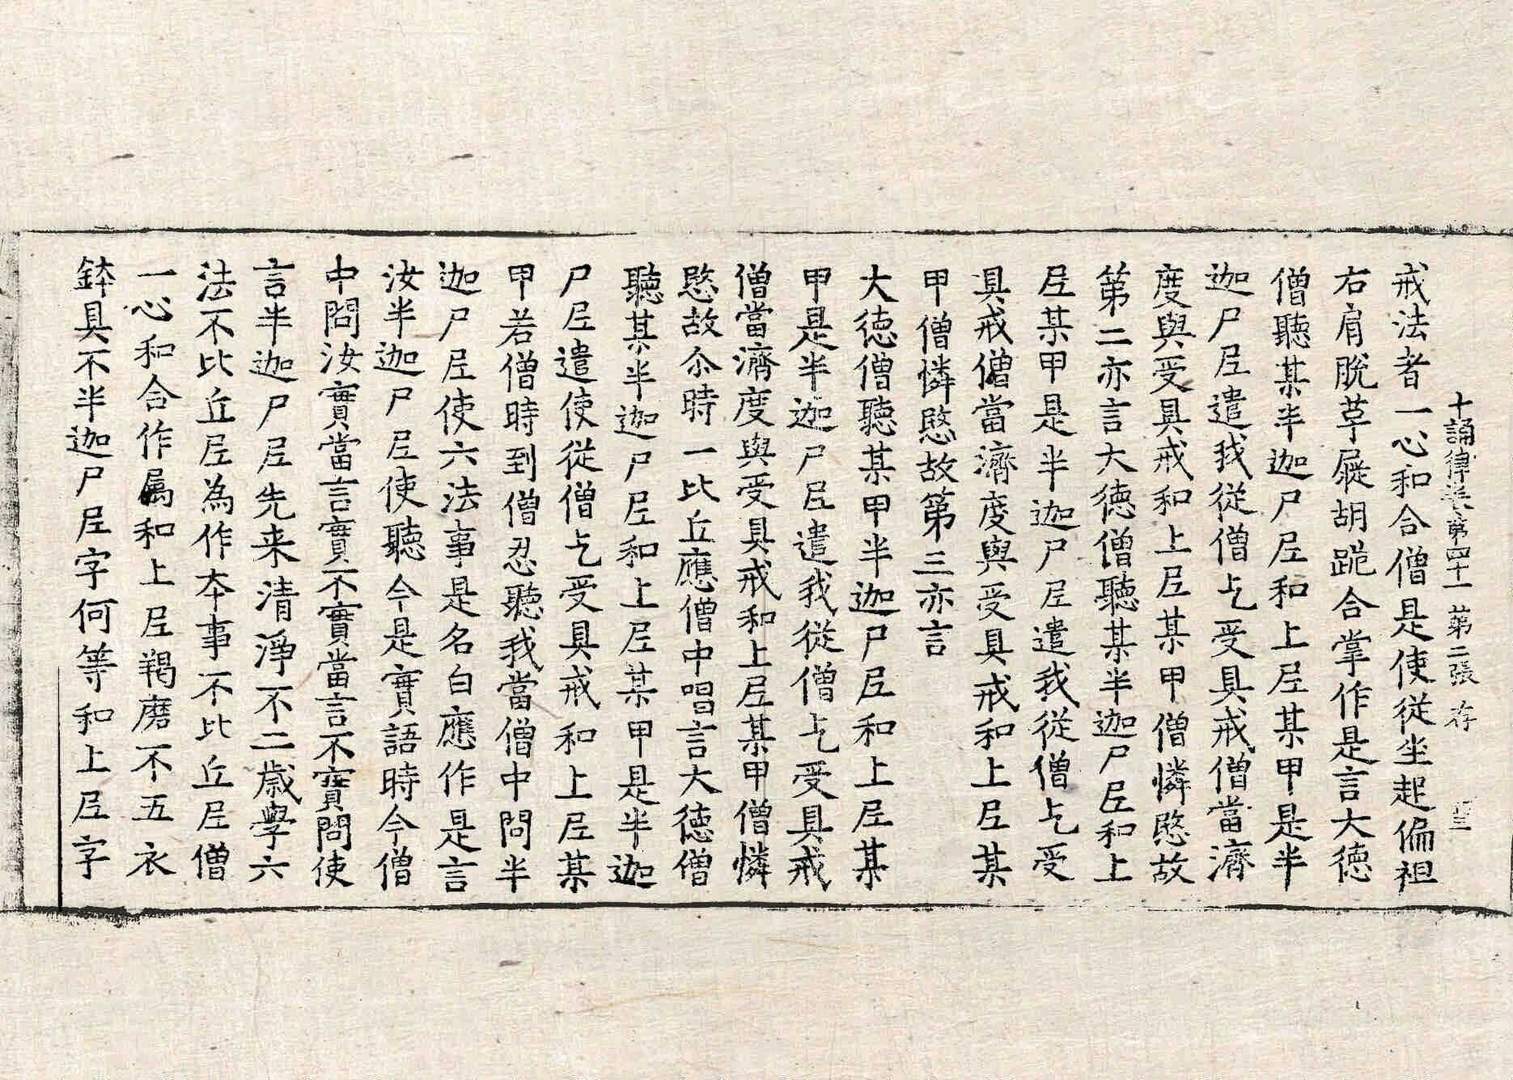 十誦律卷第四十一 第二張 存
戒法者一心和合僧是使從坐起偏袒
右肩脫草屣胡跪合掌作是言大德
僧聽某半迦尸尼和上尼某甲是半
迦尸尼遣我從僧乞受具戒僧當濟
度與受具戒和上尼某甲僧憐愍故
第二亦言大德僧聽某半迦尸尼和上
尼某甲是半迦尸尼遣我從僧乞受
具戒僧當濟度與受具戒和上尼某
甲僧憐愍故第三亦言
大德僧聽某甲半迦尸尼和上尼某
甲是半迦尸尼遣我從僧乞受具戒
僧當濟度與受具戒和上尼某甲僧憐
愍故尒時一比丘應僧中唱言大德僧
聽某半迦尸尼和上尼某甲是半迦
尸尼遣使從僧乞受具戒和上尼某
甲若僧時到僧忍聽我當僧中問半
迦尸尼使六法事是名白應作是言
汝半迦尸尼使聽今是實語時今僧
中問汝實當言實不實當言不實問使
言半迦尸尼先来清淨不二歲學六
法不比丘尼為作夲事不比丘尼僧
一心和合作属和上尼羯磨不五衣
鉢具不半迦尸尼字何等和上尼字